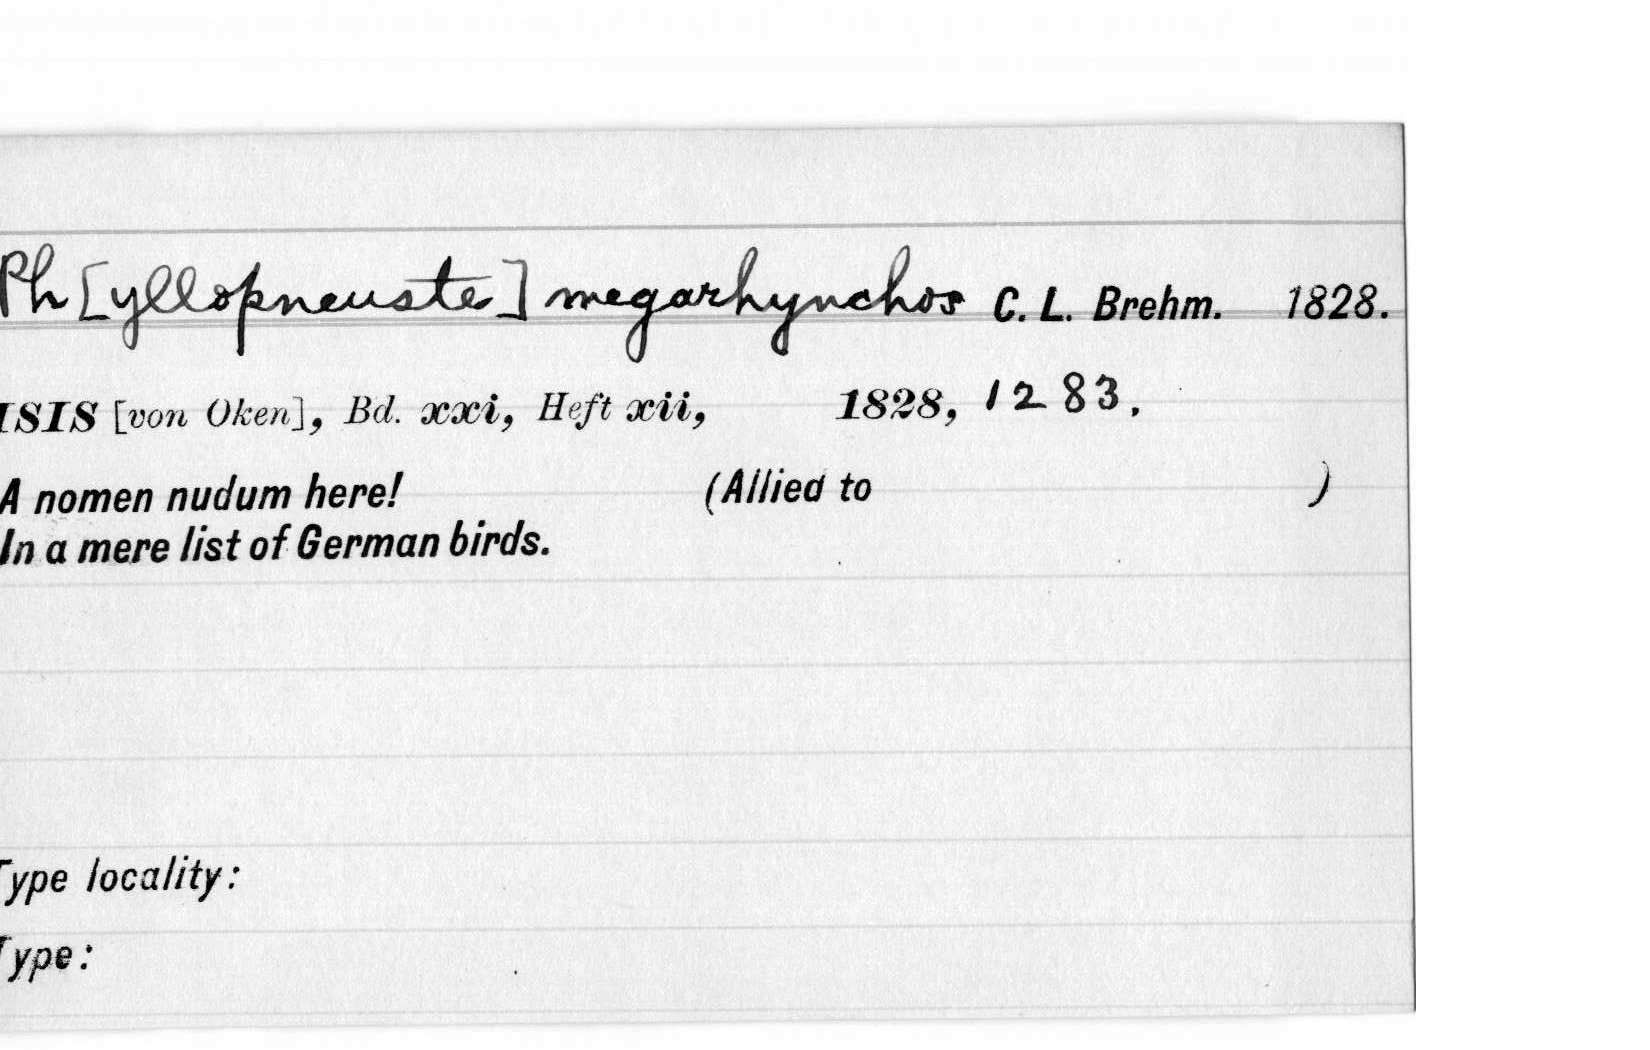 Ph[yllopneuste] megarhynchos C. L. Brehm. 1828.
ISIS [von Oken], Bd. xxi, Heft xii, 1828, 1283.
A nomen nudum here! (Allied to )
In a mere list of German birds.
Type locality:
Type: